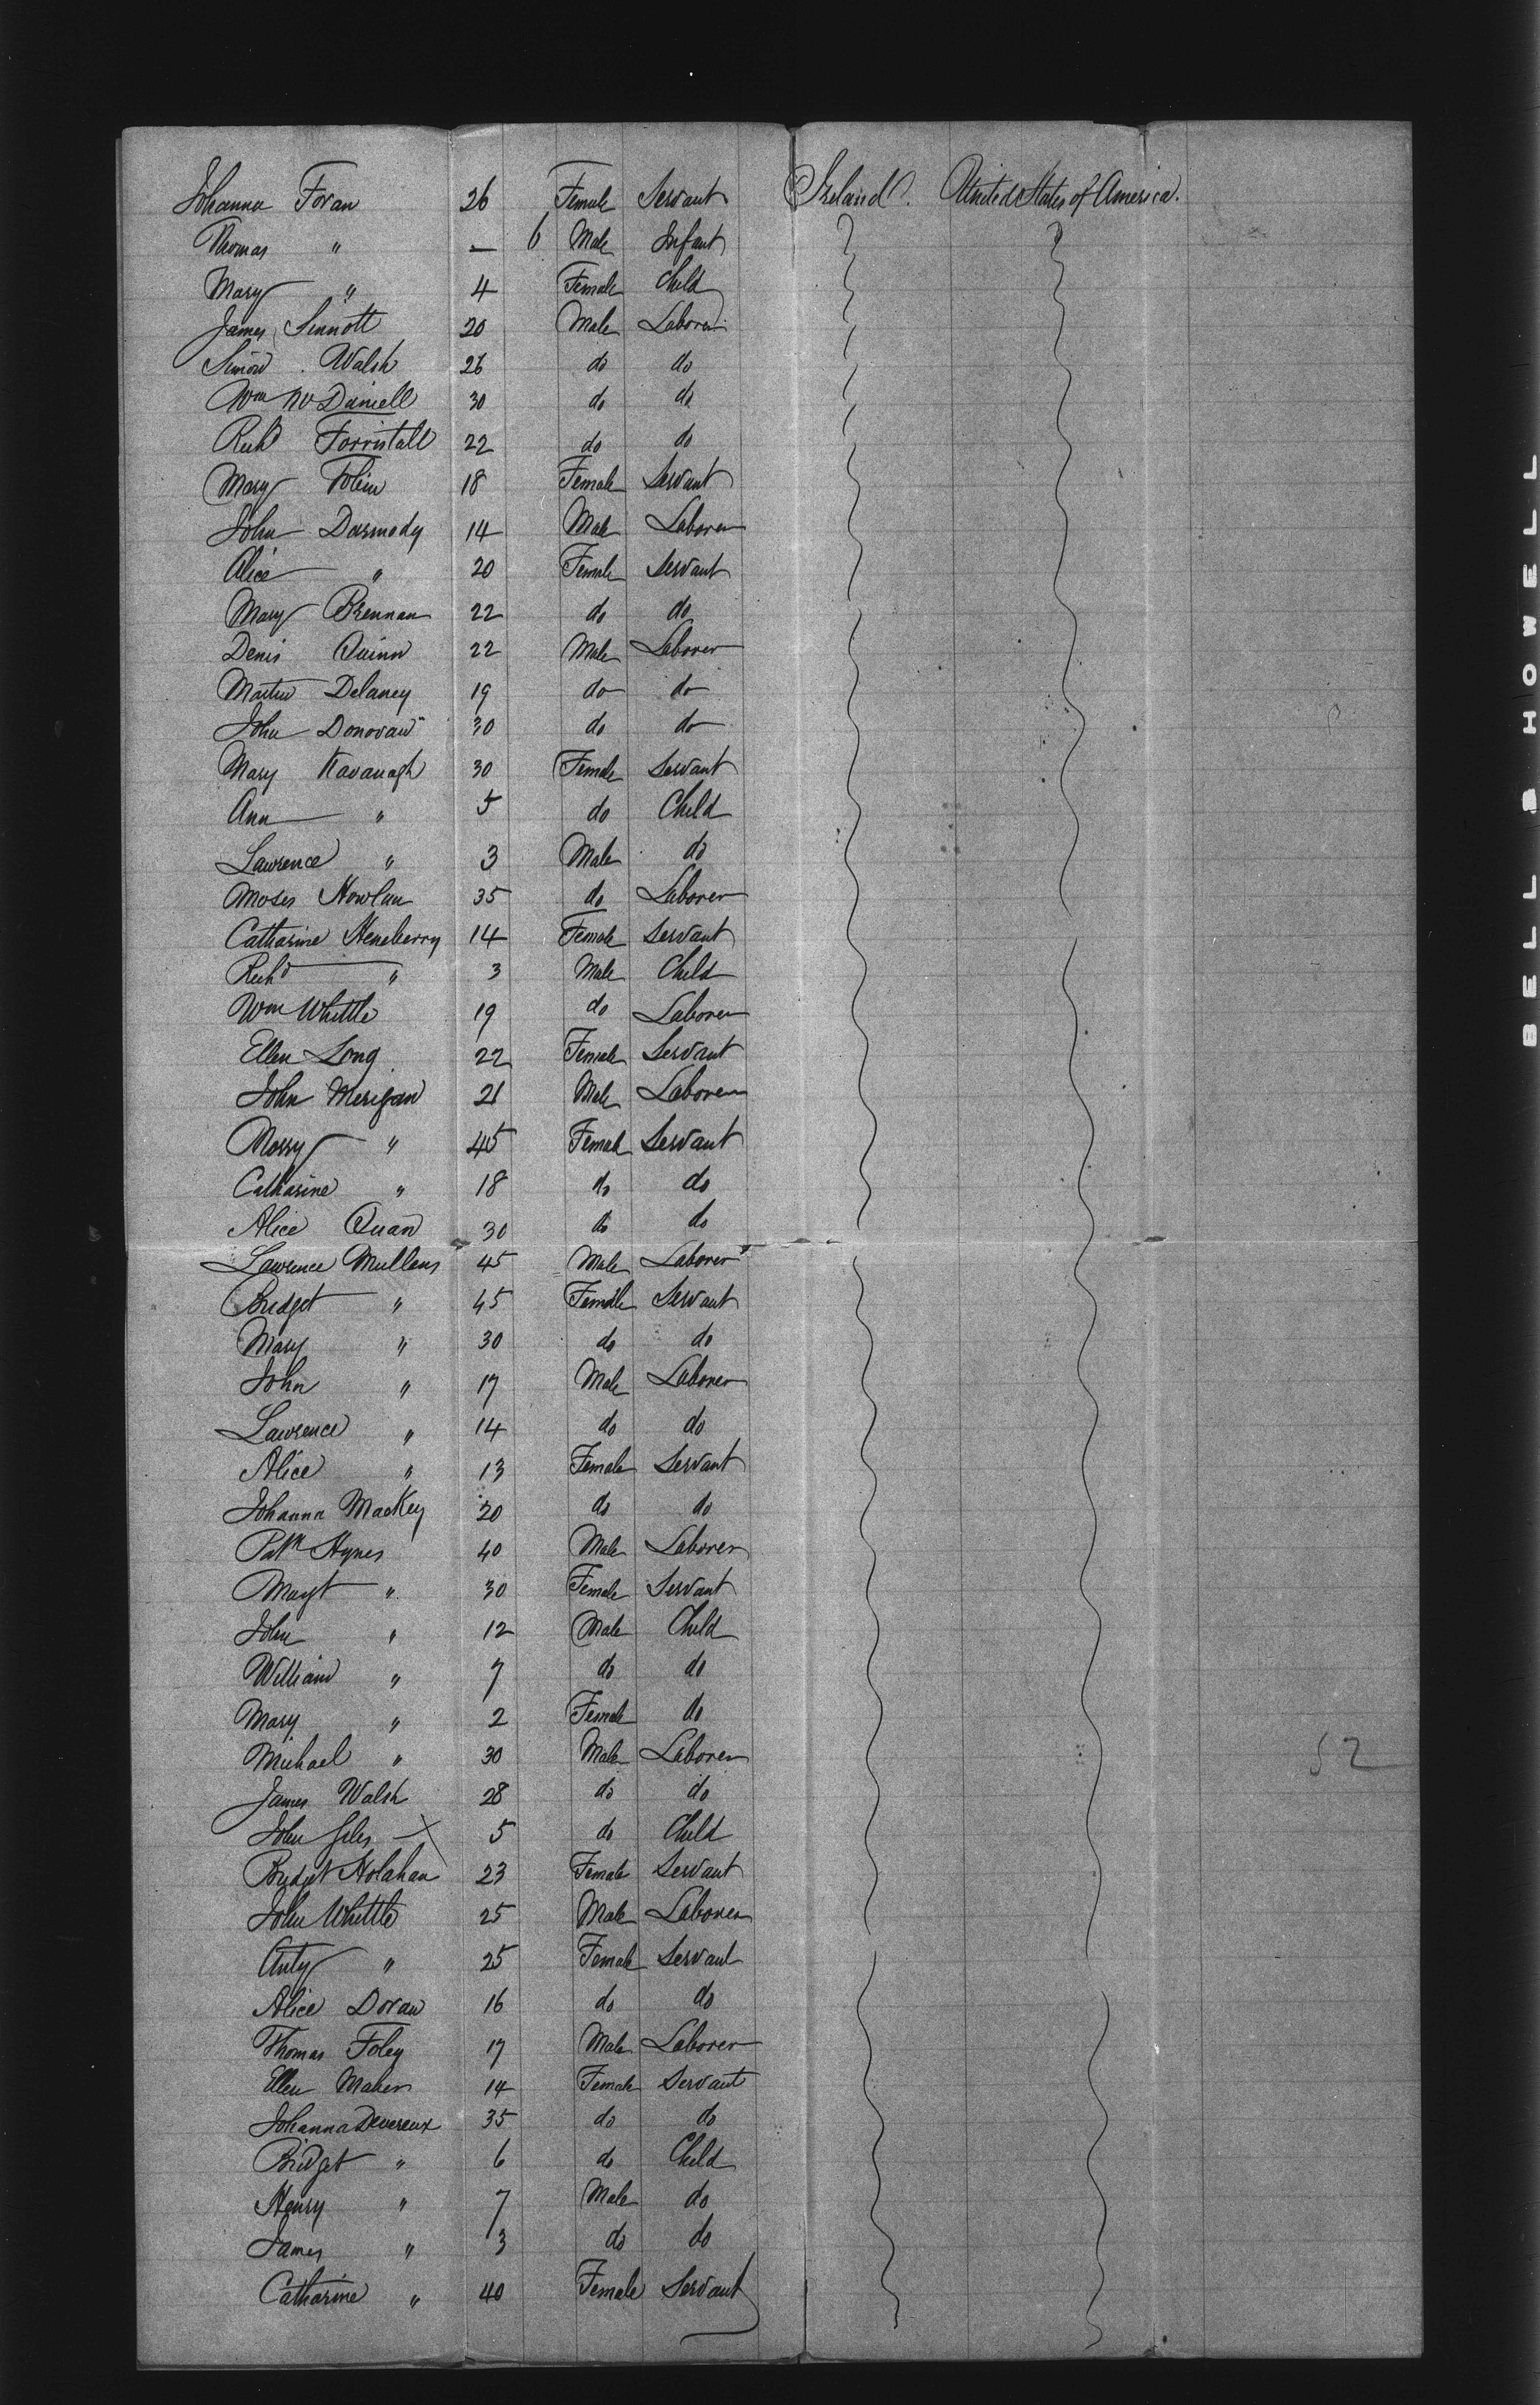 Johanna Foran 26 Female Servant Ireland. United States of America.
Thomas " — 6 Male Infant
Mary " 4 Female Child
James Sinnott 20 Male Laborer
Simon Walsh 26 do do
Wm McDaniell 30 do do
Richd Forristall 22 do do
Mary Tobin 18 Female Servant
John Darmody 14 Male Laborer
Alice " 20 Female Servant
Mary Brennan 22 do do
Denis Quinn 22 Male Laborer
Martin Delaney 19 do do
John Donovan 30 do do
Mary Kavanagh 30 Female Servant
Ann " 5 do Child
Lawrence " 3 Male do
Moses Howlan 35 do Laborer
Catharine Heneberry 14 Female Servant
Richd " 3 Male Child
Wm Whittle 19 do Laborer
Ellen Long 22 Female Servant
John Merigan 21 Male Laborer
Morry " 45 Female Servant
Catharine " 18 do do
Alice Quan 30 do do
Lawrence Mullens 45 Male Laborer
Bridget " 45 Female Servant
Mary " 30 do do
John " 17 Male Laborer
Lawrence " 14 do do
Alice " 13 Female Servant
Johanna Mackey 20 do do
Patk Hynes 40 Male Laborer
Margt " 30 Female Servant
John " 12 Male Child
William " 7 do do
Mary " 2 Female do
Michael " 30 Male Laborer
52
James Walsh 28 do do
John Giles — X 5 do Child
Bridget Holahan 23 Female Servant
John Whittle 25 Male Laborer
Anty " 25 Female Servant
Alice Doran 16 do do
Thomas Foley 17 Male Laborer
Ellen Maher 14 Female Servant
Johanna Devereux 35 do do
Bridget " 6 do Child
Henry " 7 Male do
James " 3 do do
Catharine " 40 Female Servant
BELL & HOWELL